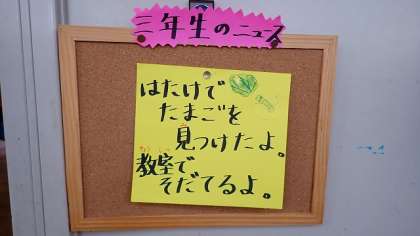 三年生のニュース
はたけで
たまごを
見つけたよ。
教室で
そだてるよ。